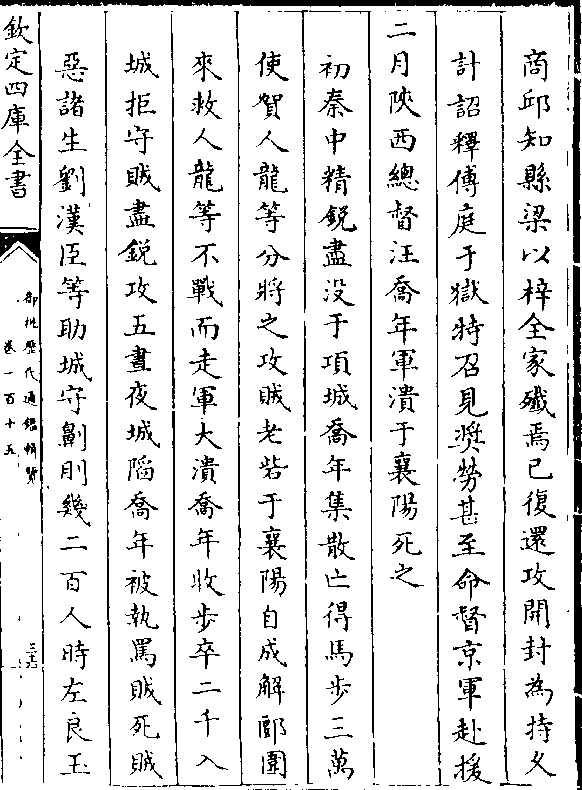 商邱知縣梁以梓全家殱焉已復還攻開封為持久
計詔釋傅庭于獄特召見奬勞甚至命督京軍赴援
二月陜西總督汪喬年軍潰于襄陽死之
初秦中精鋭盡没于項城喬年集散亡得馬步三萬
使賀人龍等分將之攻賊老砦于襄陽自成解郾圍
來救人龍等不戰而走軍大潰喬年收步卒二千入
城拒守賊盡鋭攻五晝夜城陷喬年被執罵賊死賊
惡諸生劉漢臣等助城守劓刖幾二百人時左良玉
欽定四庫全書
御批歷代通鑑輯覽
卷一百十五